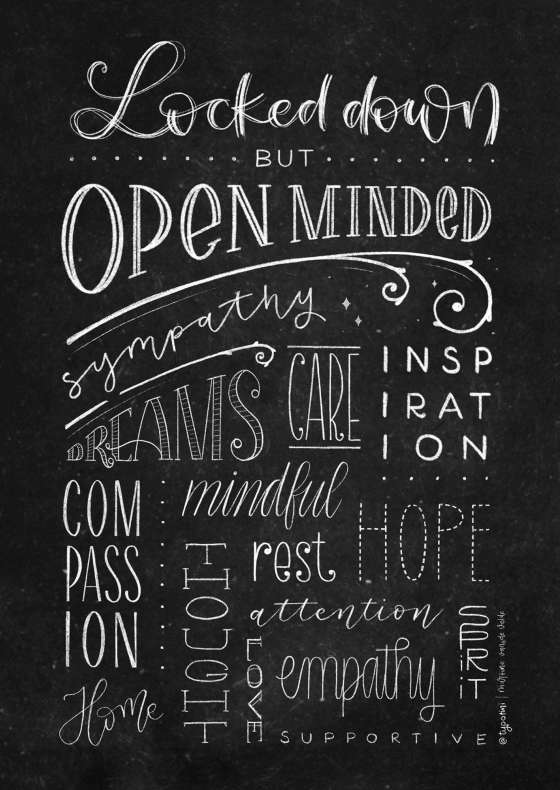 Locked down
BUT
OPEN MINDED
sympathy
DREAMS
CARE
INSP
IRAT
ION
COM
PASS
ION
mindful
HOPE
THOUGHT
rest
attention
LOVE
empathy
SPIRIT
Home
SUPPORTIVE